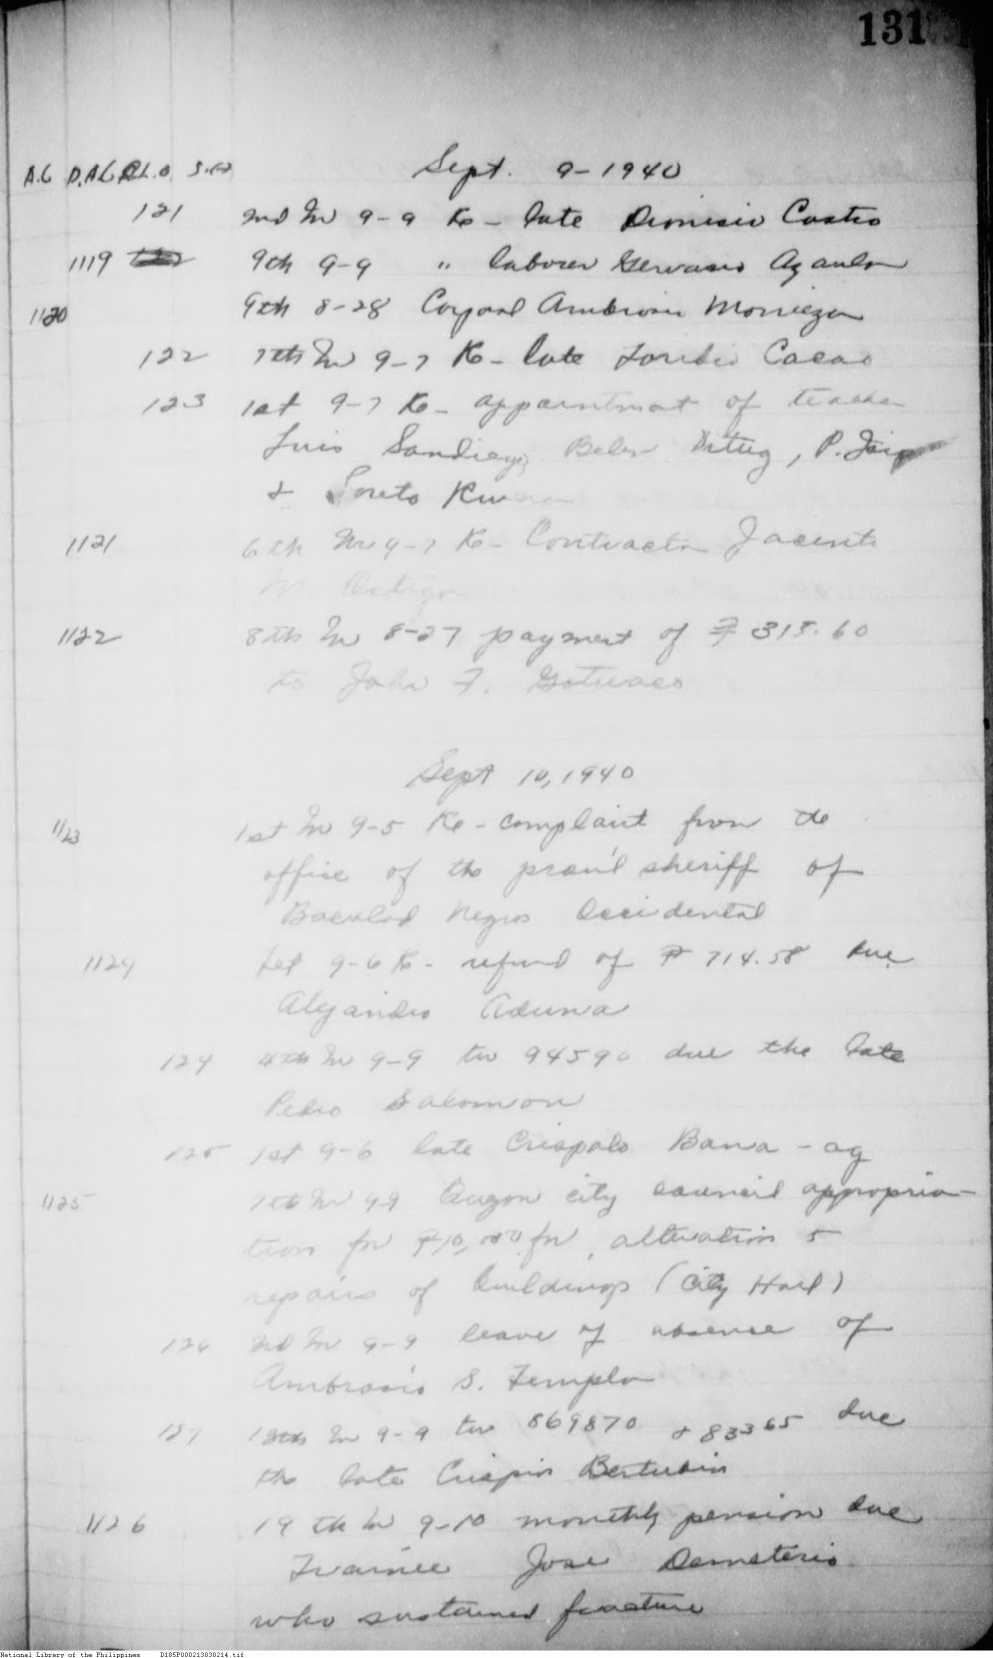 131
A.C D.A.C C.L.O.
Sept. 9-1940
121 2nd In 9-9 Re- late Dionisio Castro
1119 9th 9-9 " laborer Gervasio
1120 9th 8-28 Corporal Ambrosio
122 7th In 9-7 Re- late Toribio Cacao
123 1st 9-7 Re- appointment of teacher
Luis Sandiego, Belen Ditug, P.
& Loreto
1121 6th In 9-7 Re- Contractor Jacinto
1122 8th In 8-27 payment of ₱ 315.60
to John F. Gotuaco
Sept 10, 1940
1123 1st In 9-5 Re- complaint from the
office of the prov'l sheriff of
Bacolod Negros Occidental
1124 1st 9-6 Re- refund of ₱ 714.58 due
Alejandro Aduna
124 4th In 9-9 tw 94590 due the late
Pedro Salomon
125 1st 9-6 late Crispolo Bana-ag
1125 7th In 9-9 Quezon city council appropria-
tion for ₱10,000 for alteration &
repairs of buildings (City Hall)
126 2nd In 9-9 leave of absence of
Ambrosio S. Templo
127 In 9-9 tw 869870 & 83365 due
the late Crispin Bertubin
1126 19th In 9-10 monthly pension due
Trainee Jose Demeterio
who sustained fracture
National Library of the Philippines D185P000213030214.tif